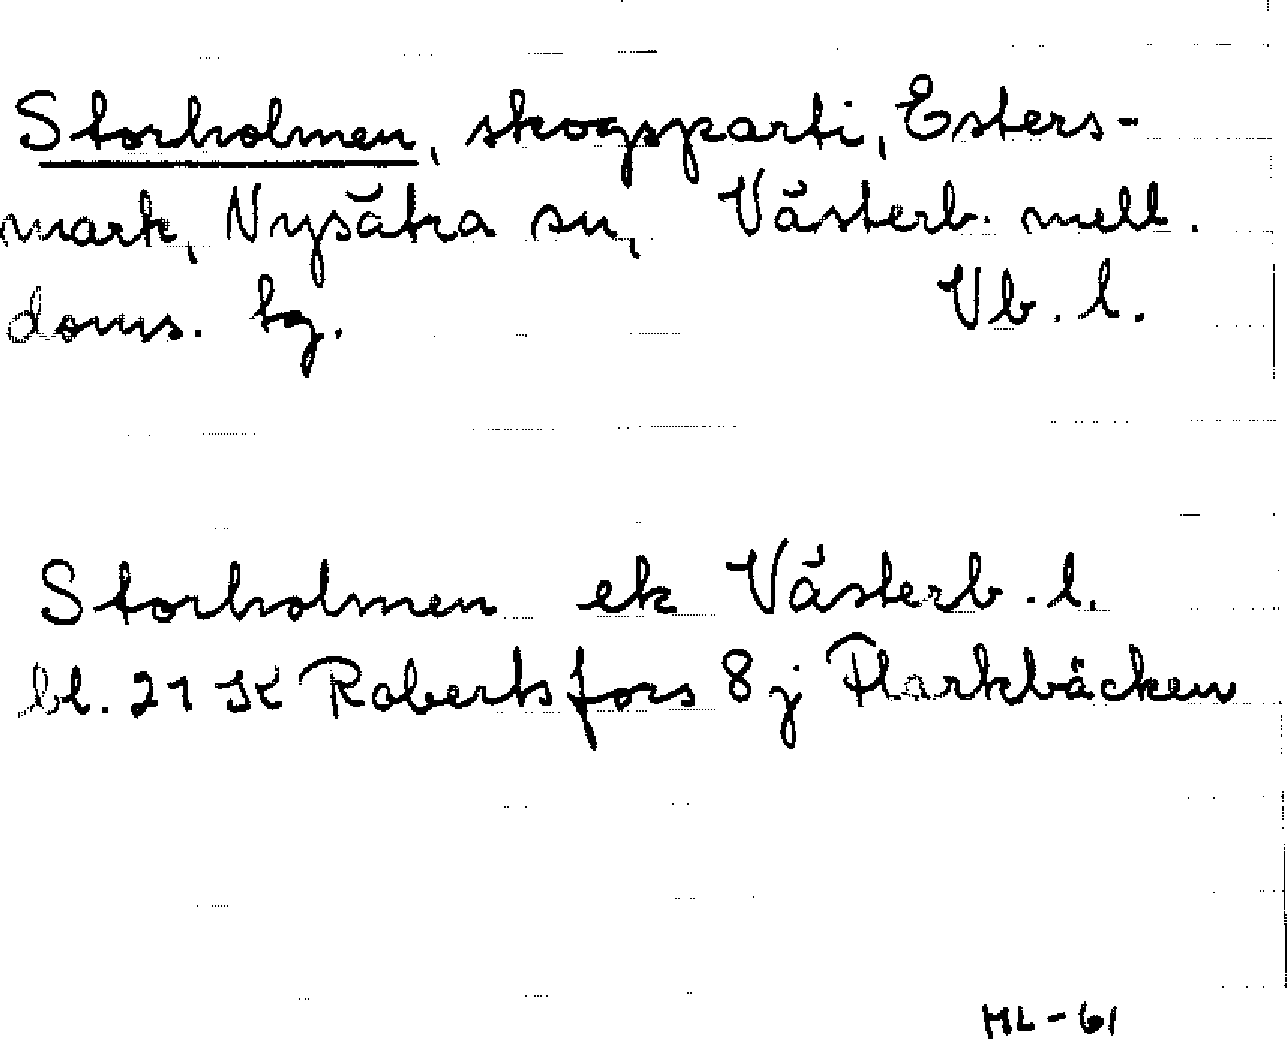 Storholmen, skogsparti, Esters-
mark, Nysätra sn, Västerb. mell.
doms. tg. Vb. l.
Storholmen ek Västerb. l.
bl. 21 K Robertsfors 8 j Flarkbäcken
ML-61